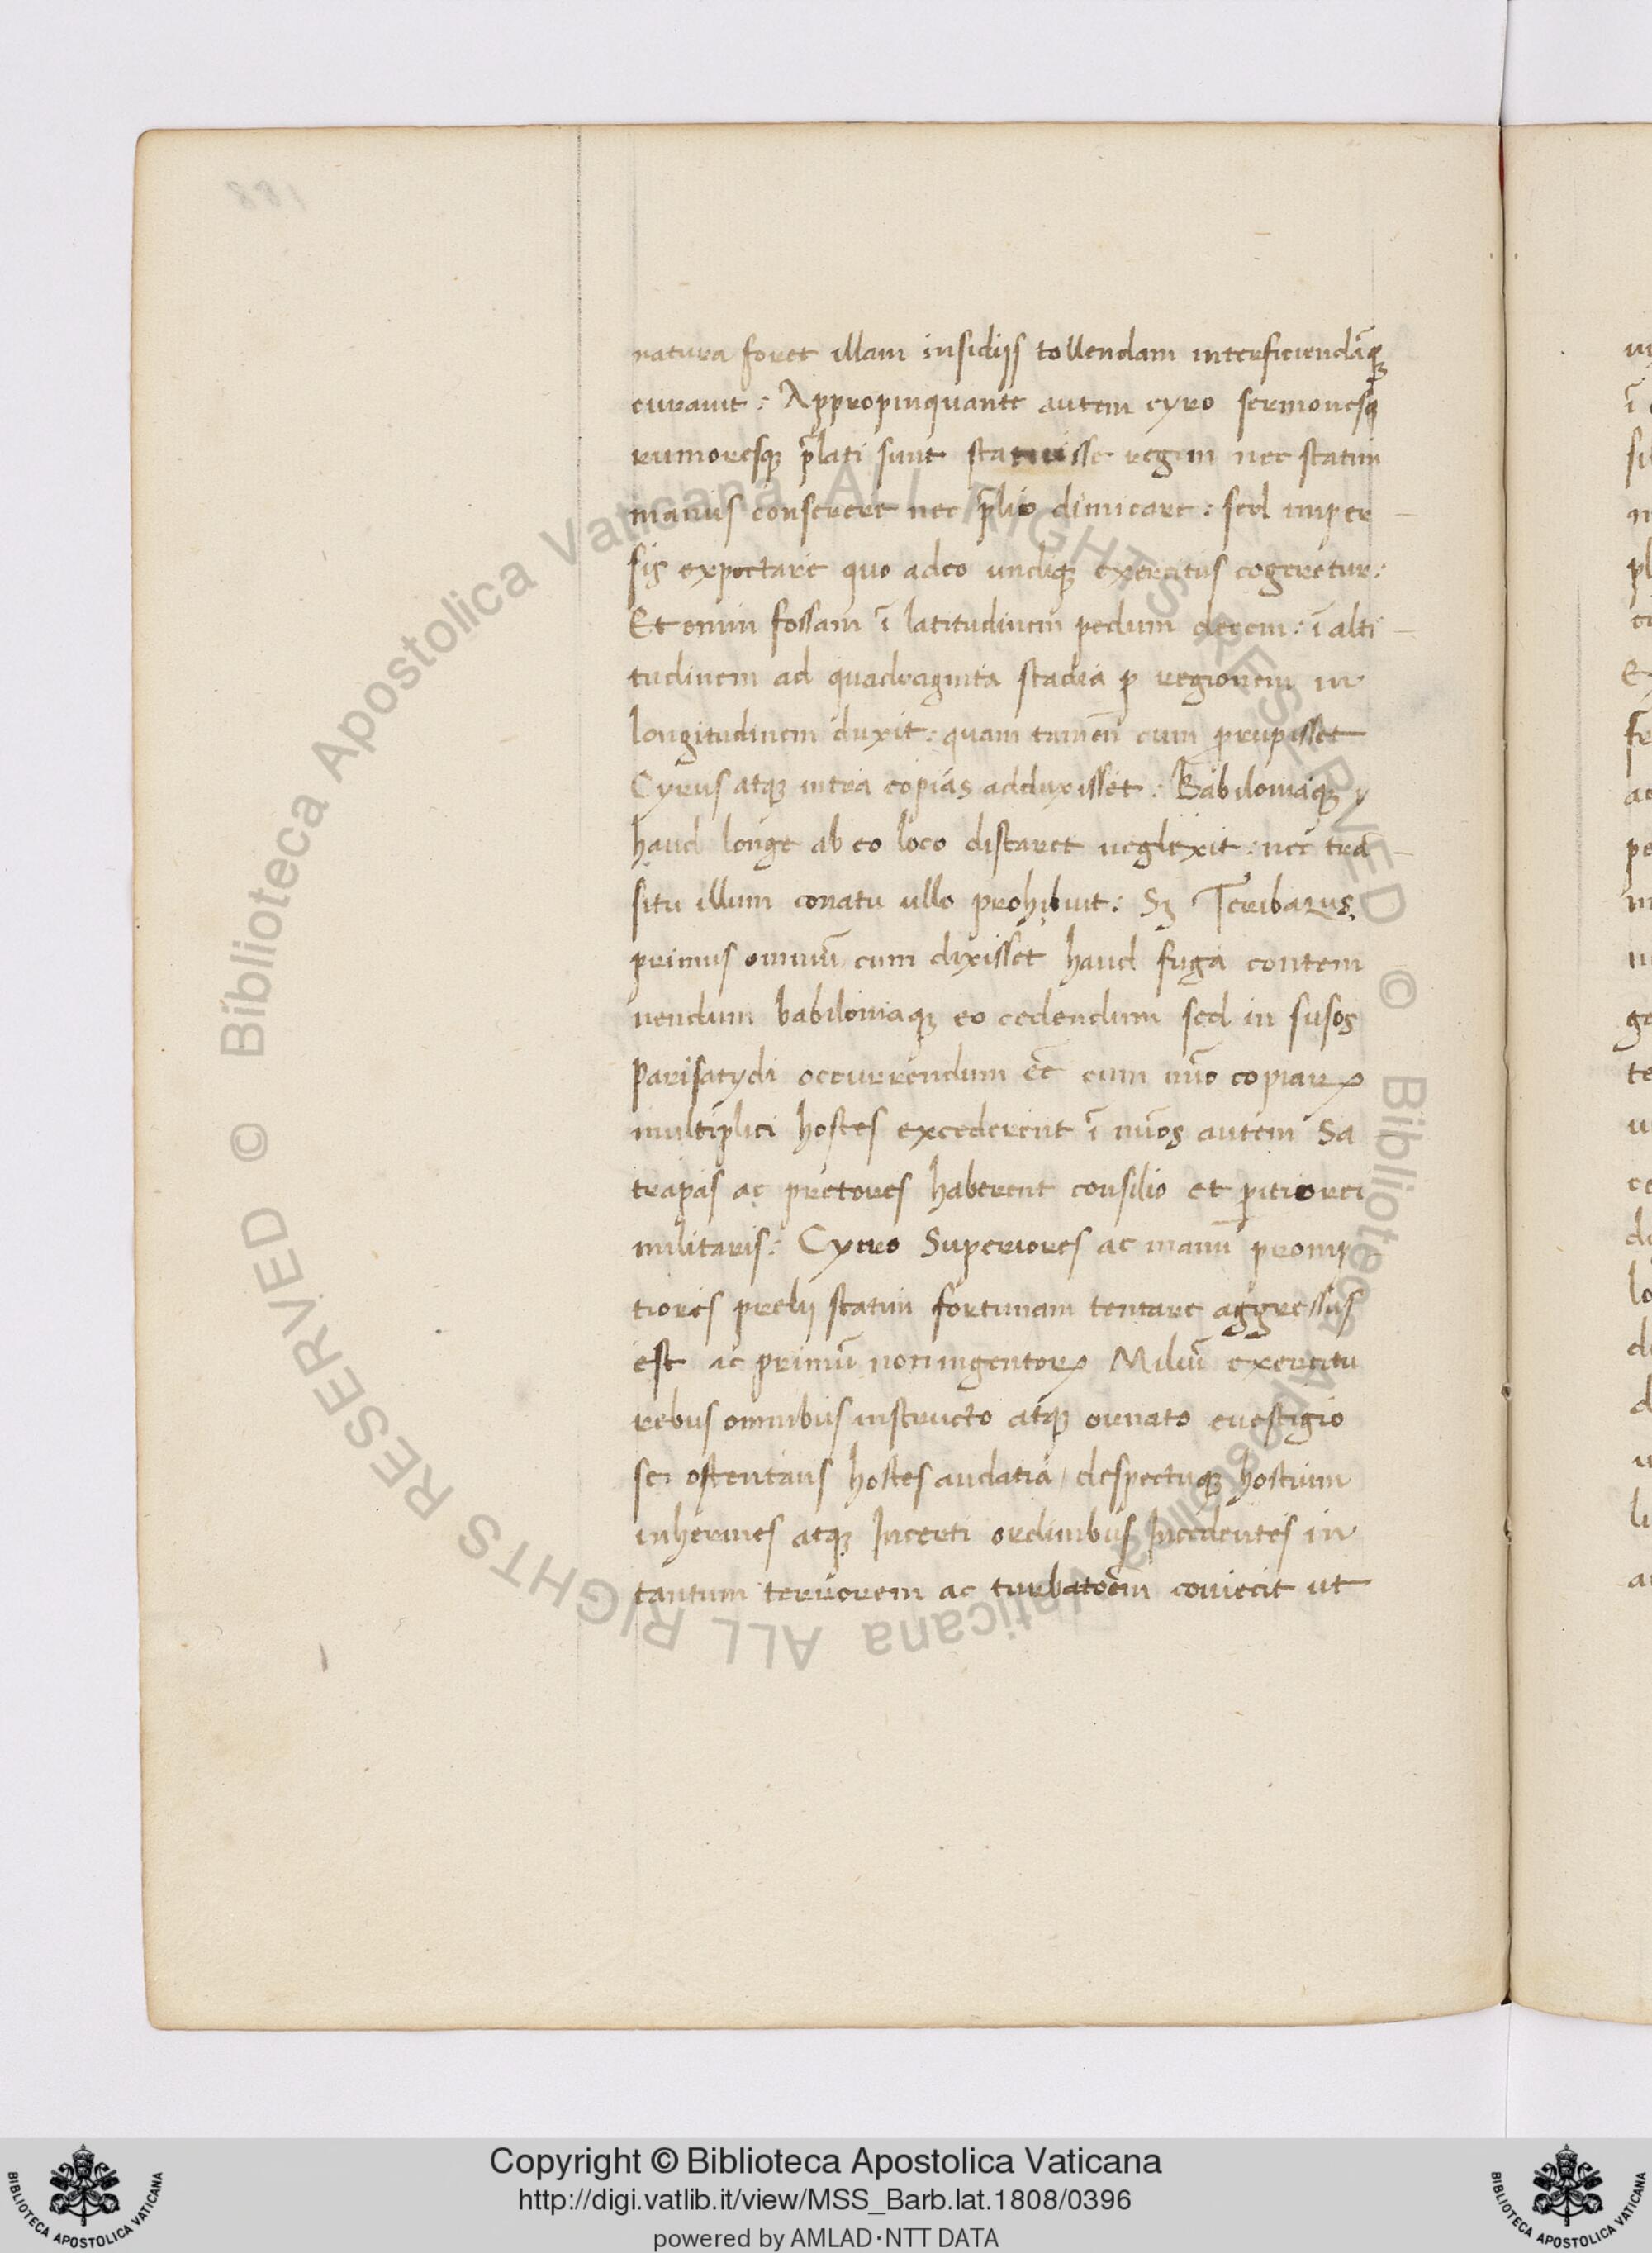 natura foret illam insidijs tollendam interficiendāq;
curauit: Appropinquante autem cyro sermonesq
rumoresq; p̄lati sunt statuisse regem nec statim
manus conserere nec p̄lio dimicare: sed imper
sis expectare quo adeo undiq; exercitus cogeretur:
Et enim fossam ī latitudinem pedum decem: ī alti
tudinem ad quadraginta stadia ꝑ regionem in
longitudinem duxit: quam tamen cum prupisset
Cyrus atq; intra copias adduxisset: Babiloniaq;
haud longe ab eo loco distaret neglexit: nec trā
situ illum conatu ullo prohibuit: Sꝫ Teribazus
primus omniū cum dixisset haud fuga contem
nendum babiloniaq; eo cedendum sed in susos
Parisatydi occurrendum eē cum nūo copiaꝝ
multiplici hostes excederent ī nūos autem Sa
trapas ac pretores haberent consilio et ꝑitiorei
militaris: Cyrro Superiores ac manū promp
tiores prelij statim fortunam tentare aggressus
est ac primū noningentoꝝ Miliū exercitu
rebus omnibus instructo atq; ornato euestigio
sei ostentans hostes audatia / despectuq; hostium
inhermes atq; Incerti ordinibus Incedentes in
tantum terrorem ac turbatoēm coniecit ut
188
Copyright © Biblioteca Apostolica Vaticana
http://digi.vatlib.it/view/MSS_Barb.lat.1808/0396
powered by AMLAD·NTT DATA
BIBLIOTECA APOSTOLICA VATICANA
BIBLIOTECA APOSTOLICA VATICANA
© Biblioteca Apostolica Vaticana ALL RIGHTS RESERVED
© Biblioteca Apostolica Vaticana ALL RIGHTS RESERVED